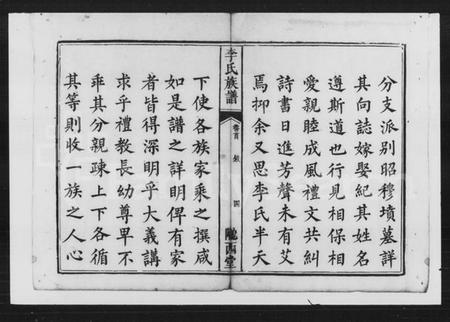 分支派別昭穆墳墓詳
其向誌嫁娶紀其姓名
遵斯道也行見相保相
愛親睦成風禮文共糾
詩書日進芳聲未有艾
焉抑余又思李氏半天
李氏族譜
卷首
敘
四
隴西堂
下使各族家乘之撰咸
如是譜之詳明俾有家
者皆得深明乎大義講
求乎禮教長幼尊卑不
乖其分親疎上下各循
其等則收一族之人心